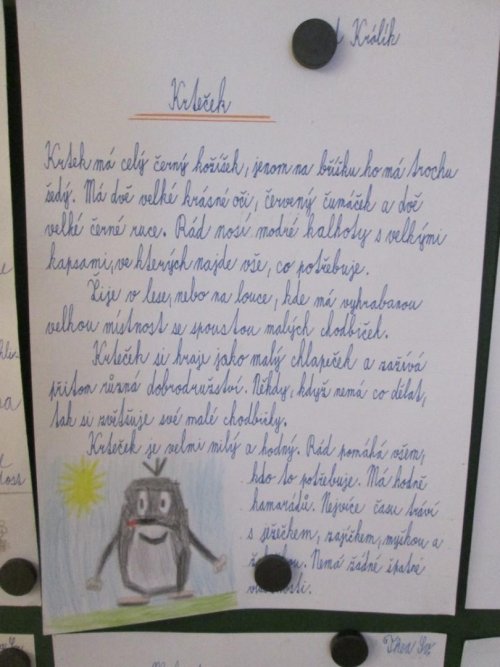 Králík
Krteček
Krtek má celý černý kožíšek, jenom na bříšku ho má trochu
šedý. Má dvě velké krásné oči, červený čumáček a dvě
velké černé ruce. Rád nosí modré kalhoty s velkými
kapsami, ve kterých najde vše, co potřebuje.
Žije v lese, nebo na louce, kde má vyhrabanou
velkou místnost se spoustou malých chodbiček.
Krteček si hraje jako malý chlapeček a zažívá
přitom různá dobrodružství. Někdy, když nemá co dělat,
tak si zvětšuje své malé chodbičky.
Krteček je velmi milý a hodný. Rád pomáhá všem,
kdo to potřebuje. Má hodně
kamarádů. Nejvíce času tráví
s ježečkem, zajíčkem, myškou a
Nemá žádné špatné
Thea